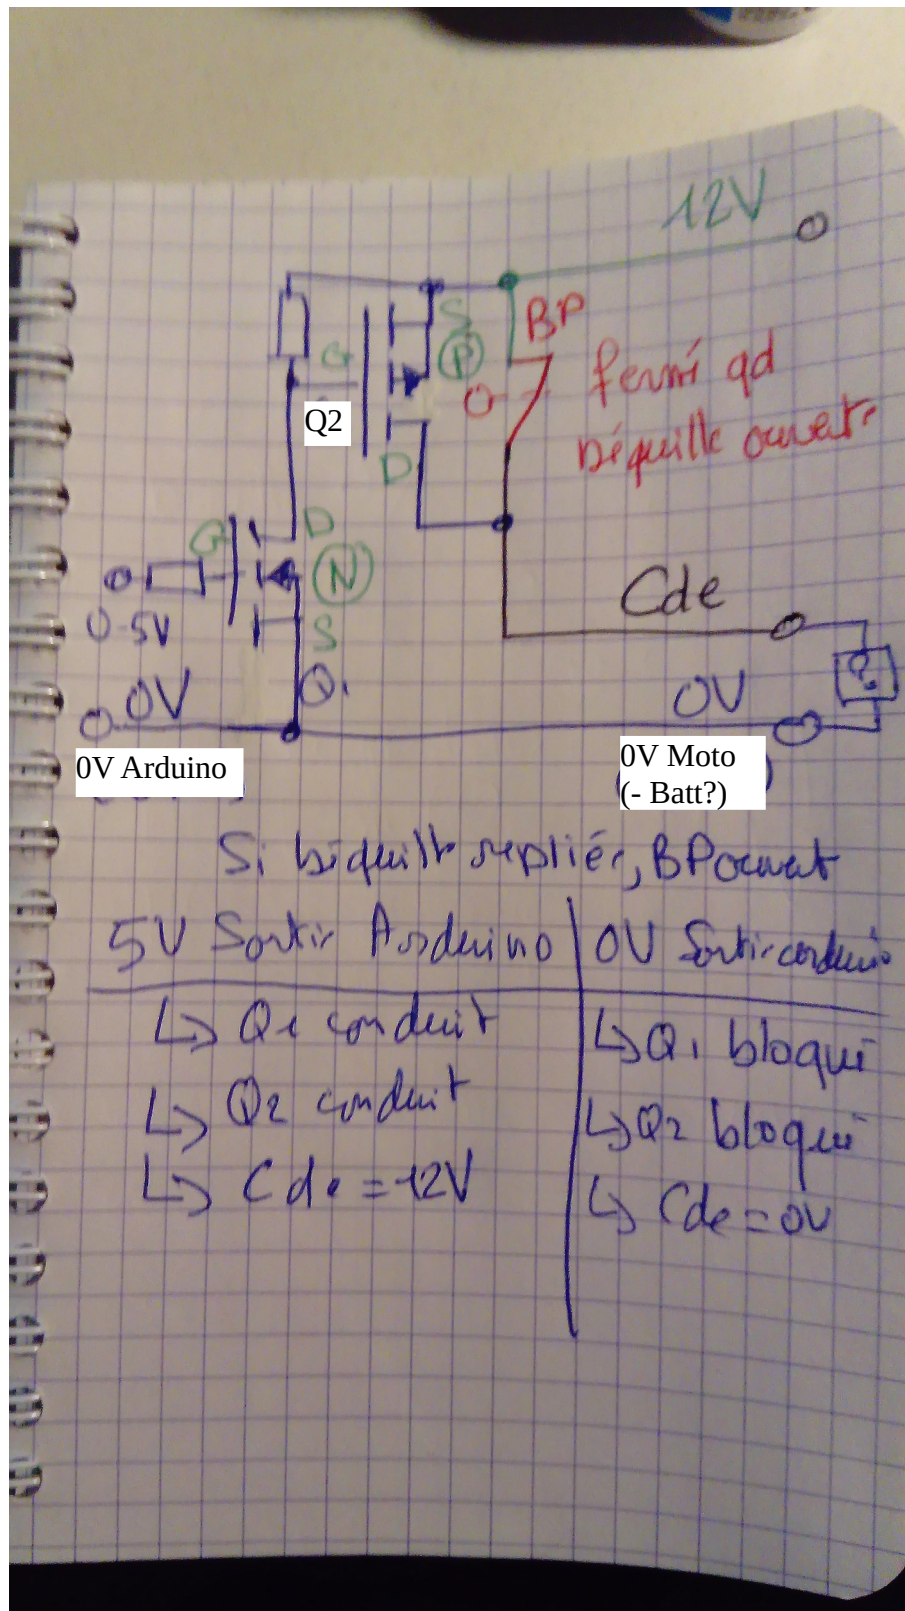 12V
S
BP
P
G
fermé qd
béquille ouverte
Q2
D
D
G
N
0-5V
S
Cde
?
Q1
0V
0V
0V Arduino
0V Moto
(- Batt?)
Si béquille repliée, BP ouvert
5V Sortie Arduino | 0V Sortie arduino
↳ Q1 conduit
↳ Q1 bloqué
↳ Q2 conduit
↳ Q2 bloqué
↳ Cde = 12V
↳ Cde = 0V